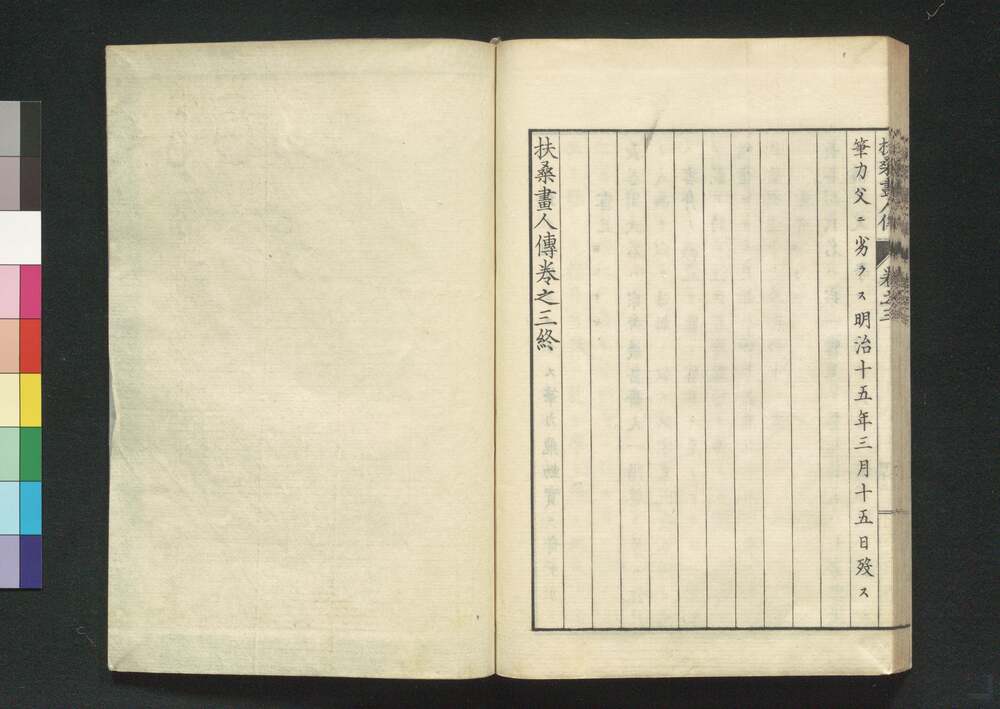 扶桑畫人傳 卷之三
筆力父ニ劣ラス明治十五年三月十五日歿ス
扶桑畫人傳卷之三終